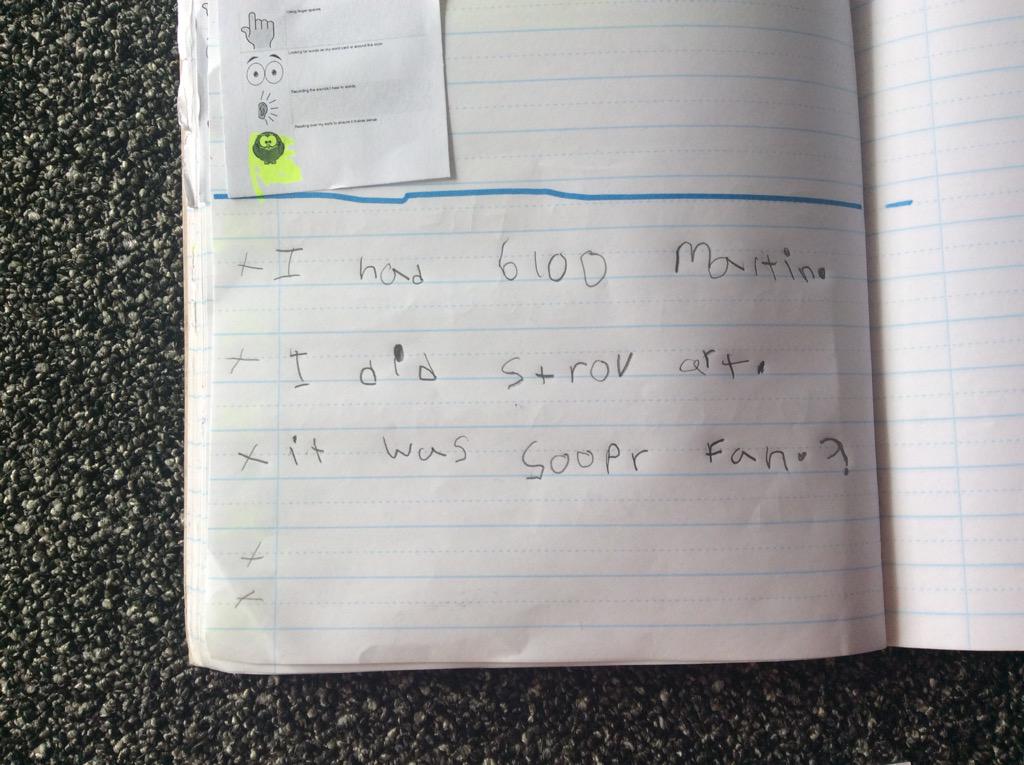 Using finger spaces
Looking for words on my word card or around the room
Recording the sounds I hear in words
Reading over my work to ensure it makes sense
+ I had 6100 Martin.
+ I did strov art.
x it was soopr Fan.?
+
+